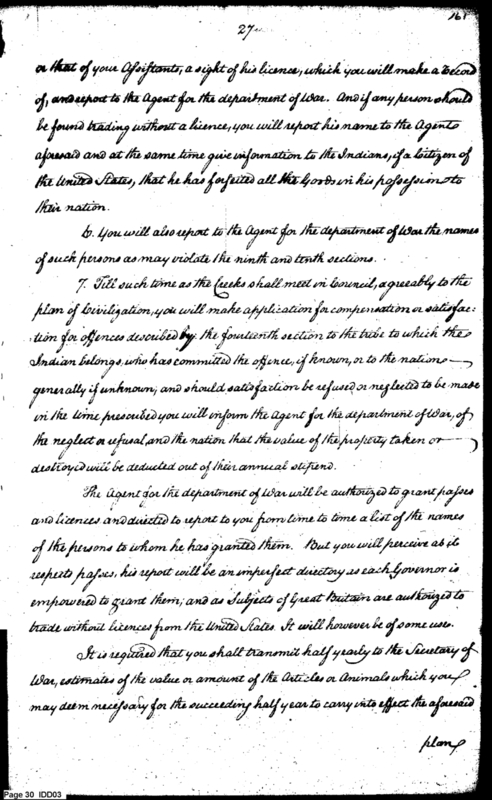 161
27
or that of your Assistants, a sight of his licence, which you will make a record
of, and report to the Agent for the department of War. And if any person should
be found trading without a licence, you will report his name to the Agent
aforesaid and at the same time give information to the Indians, if a Citizen of
the United States, that he has forfeited all the Goods in his possession to
their nation.
6. You will also report to the Agent for the department of War the names
of such persons as may violate the ninth and tenth sections.
7. Till such time as the Creeks shall meet in Council, agreeably to the
plan of Civilization, you will make application for compensation or satisfac-
tion for offences described by the fourteenth section to the tribe to which the
Indian belongs, who has committed the offence, if known, or to the nation
generally if unknown; and should satisfaction be refused or neglected to be made
in the time prescribed you will inform the Agent for the department of War, of
the neglect or refusal, and the nation that the value of the property taken or
destroyed will be deducted out of their annual stipend.
The Agent for the department of War will be authorized to grant passes
and licences and directed to report to you from time to time a list of the names
of the persons to whom he has granted them. But you will perceive as it
respects passes, his report will be an imperfect directory as each Governor is
empowered to grant them; and as Subjects of Great Britain are authorized to
trade without licences from the United States. It will however be of some use.
It is required that you shall transmit half yearly to the Secretary of
War, estimates of the value or amount of the Articles or Animals which you
may deem necessary for the succeeding half year to carry into effect the aforesaid
plan
Page 30 IDD03